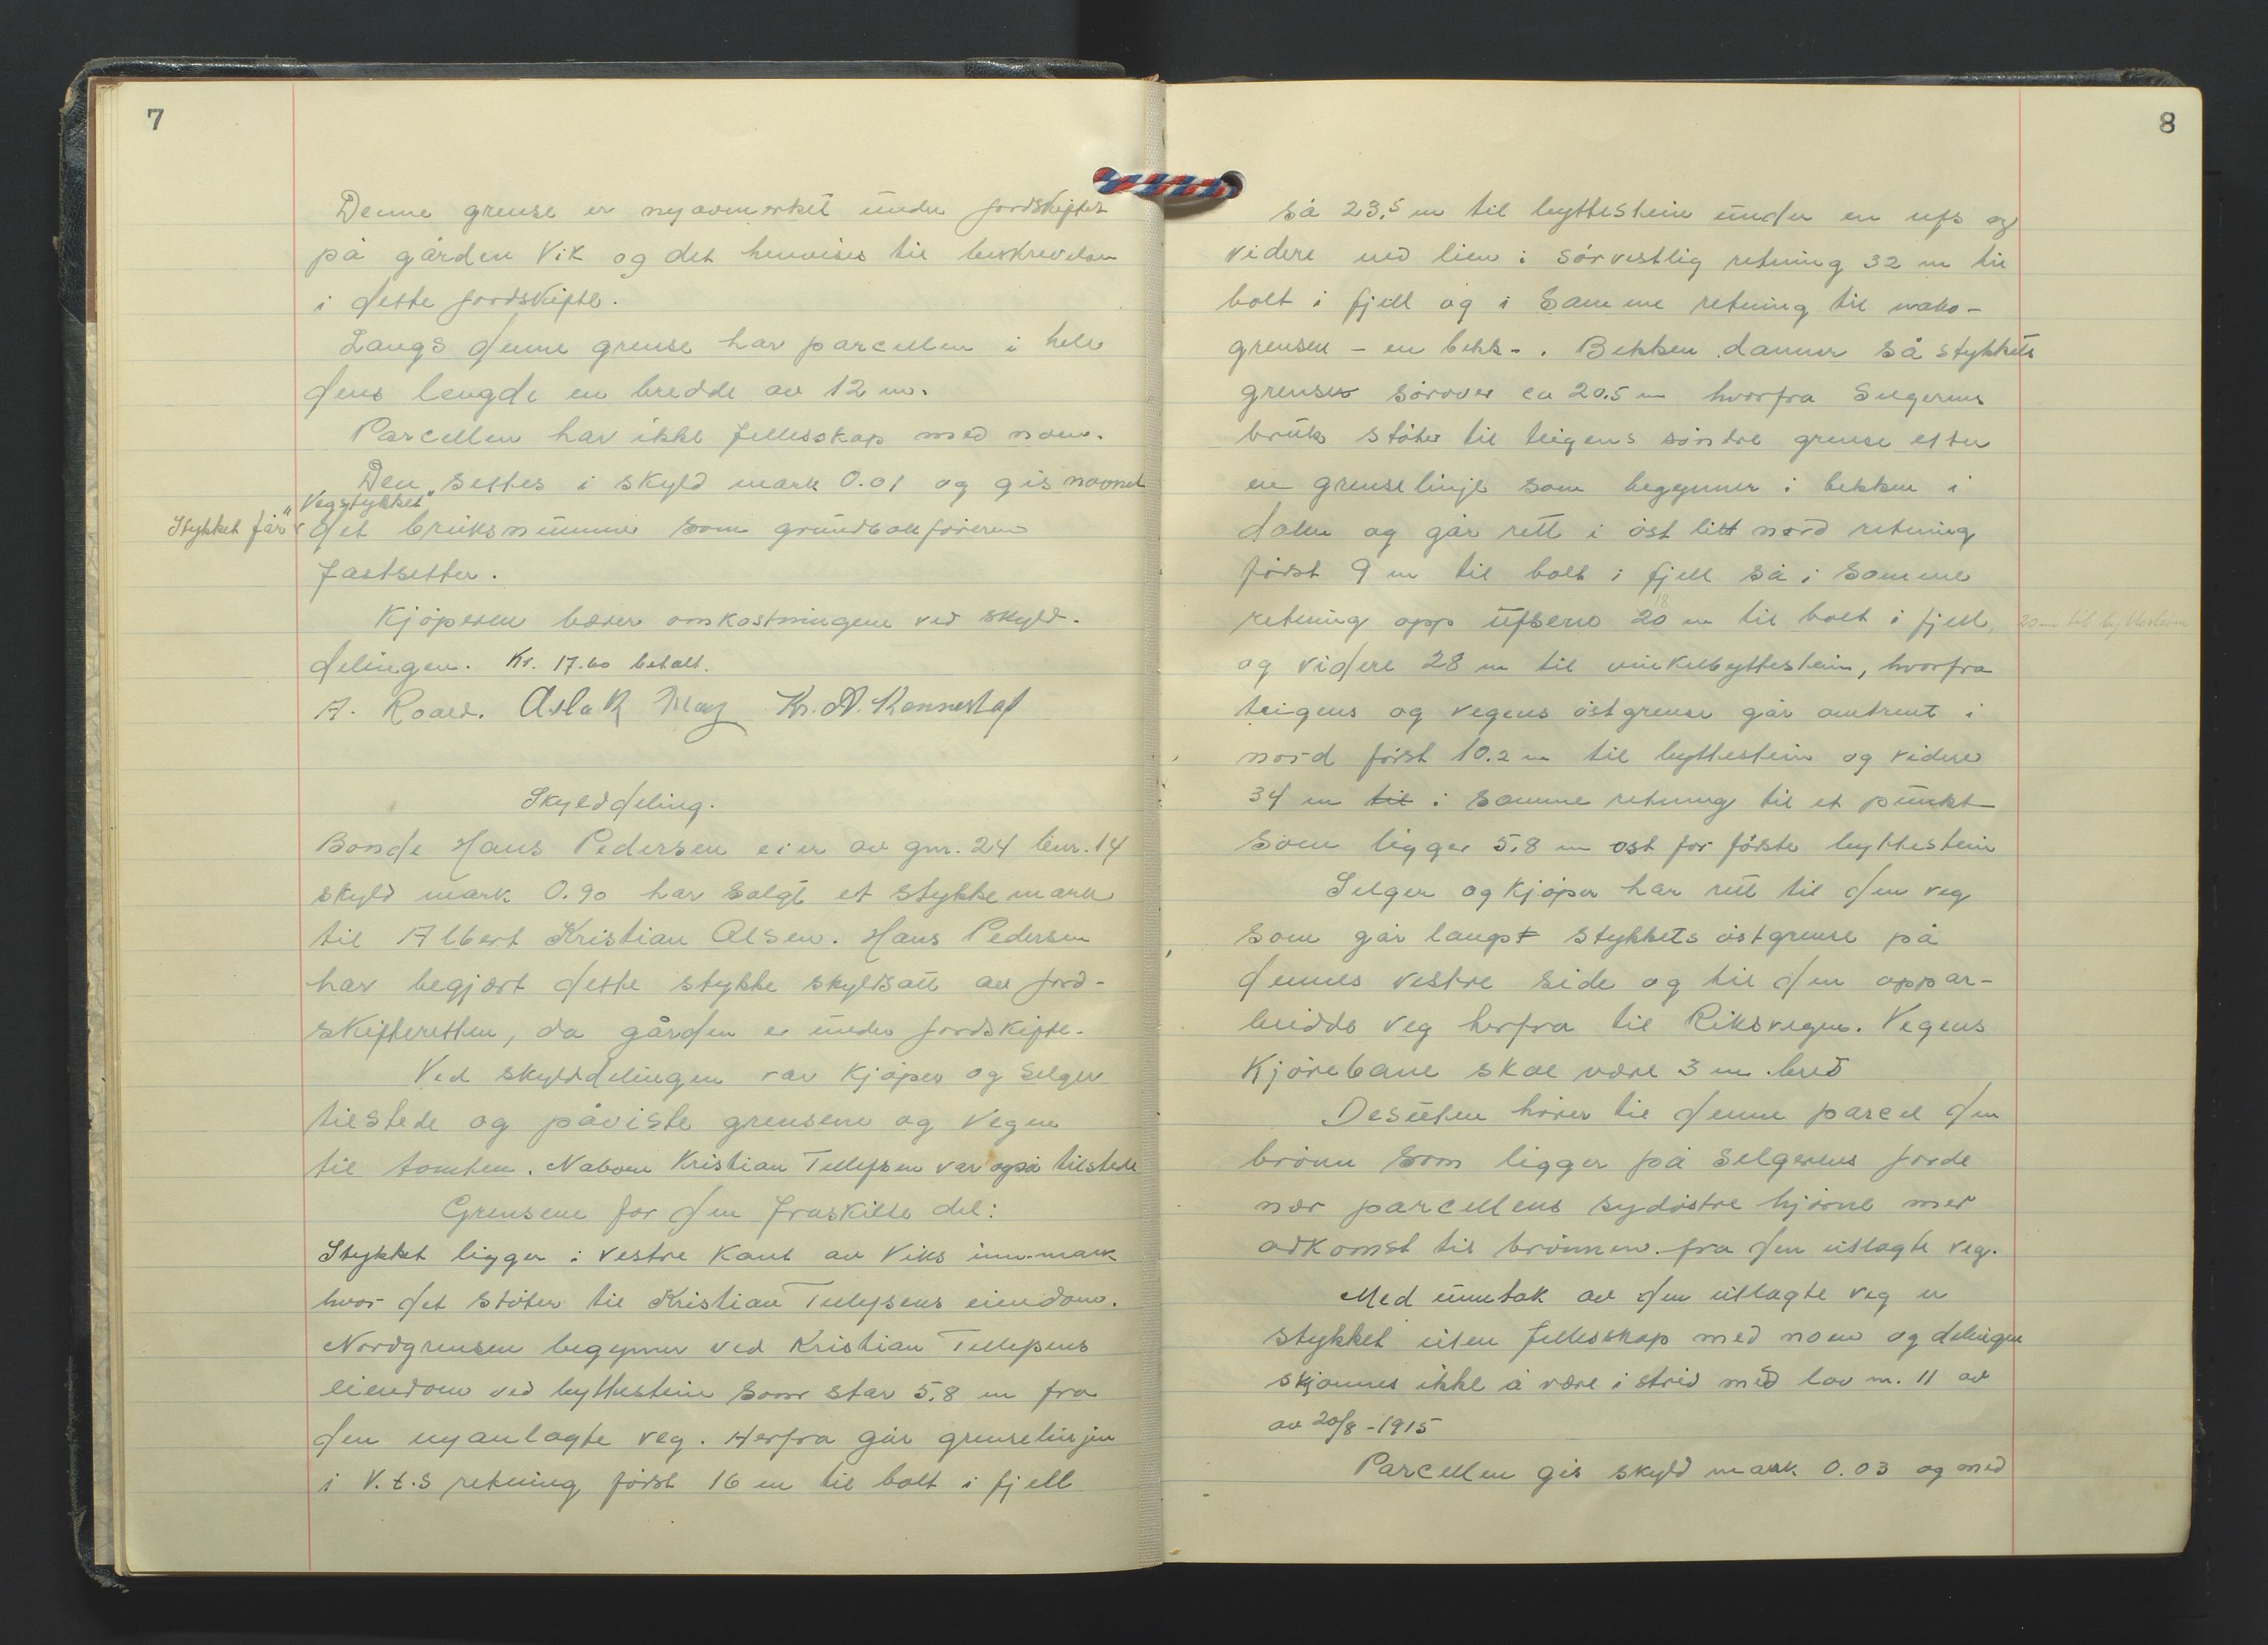 7
Denne grense er nyavmerket under jordskiftet
på gården Vik og det henvises til beskrivelsen
i dette jordskifte.
Langs denne grense har parcellen i hele
dens lengde en bredde av 12 m.
Parcellen har ikke fellesskap med noen.
Den settes i skyld mark 0.01 og gis navnet
"Vegstykket"
Stykket får det bruksnummer som grundbokføreren
fastsetter.
Kjøperen bærer omkostningene ved skyld-
delingen. Kr. 17.60 betalt.
A. Roald. Aslak May Kr. A. Rønnestad
Skylddeling.
Bonde Hans Pedersen eier av gnr. 24 bnr. 14
skyld mark 0.90 har solgt et stykke mark
til Albert Kristian Olsen. Hans Pedersen
har begjært dette stykke skyldsatt av jord-
skifteretten, da gården er under jordskifte.
Ved skylddelingen var kjøper og selger
tilstede og påviste grensene og vegen
til tomten. Naboen Kristian Tellefsen var også tilstede
Grensene for den fraskilte del:
Stykket ligger i vestre kant av Viks innmark
hvor det støter til Kristian Tellefsens eiendom.
Nordgrensen begynner ved Kristian Tellefsens
eiendom ved byttestein som står 5.8 m fra
den nyanlagte veg. Herfra går grenselinjen
i V.t.S retning først 16 m til bolt i fjell
8
så 23.5 m til byttestein under en ufs og
videre ned lien i sørvestlig retning 32 m til
bolt i fjell og i samme retning til nabo-
grensen - en bekk-. Bekken danner så stykkets
grense sørover ca 20.5 m hvorfra Selgerens
bruk støter til teigens søndre grense etter
en grenselinje som begynner i bekken i
dalen og går rett i øst litt nord retning
først 9 m til bolt i fjell så i samme
18
retning opp ufsene 20 m til bolt i fjell, 20 m til byttestein
og videre 28 m til vinkelbyttestein, hvorfra
teigens og vegens østgrense går omtrent i
nord først 10.2 m til byttestein og videre
34 m til i samme retning til et punkt
som ligger 5.8 m øst for første byttestein
Selger og kjøper har rett til den veg
som går langst stykkets østgrense på
dennes vestre side og til den oppar-
beidde veg herfra til Riksvegen. Vegens
Kjørebane skal være 3 m bred
Desuten hører til denne parcel den
brønn som ligger på selgerens jorde
nær parcellens sydøstre hjørne med
adkomst til brønnen fra den utlagte veg.
Med unntak av den utlagte veg er
stykket uten fellesskap med noen og delingen
skjønnes ikke å være i strid med lov nr. 11 av
av 20/8-1915
Parcellen gis skyld mark 0.03 og med